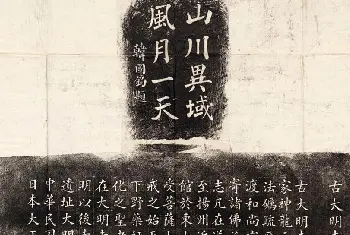 山川異域
風月一天
韓國鈞題
古大明
古大明
家神龍
法
波和尚
寄諸佛
志
至揚州
館於東
受菩薩
戒之始
下野藥
化之聖
在大明
明以後
遺址大明
中華民國
日本大正